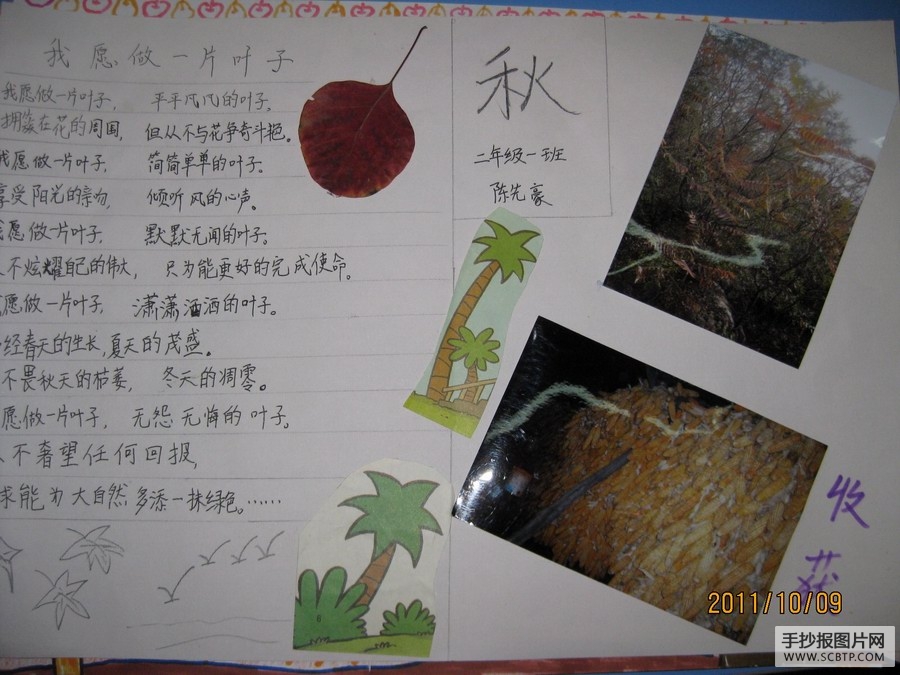 我愿做一片叶子
我愿做一片叶子， 平平凡凡的叶子，
拥簇在花的周围， 但从不与花争奇斗艳。
我愿做一片叶子， 简简单单的叶子。
享受阳光的亲吻， 倾听风的心声。
我愿做一片叶子， 默默无闻的叶子。
不炫耀自己的伟大， 只为能更好的完成使命。
愿做一片叶子， 潇潇洒洒的叶子。
经春天的生长，夏天的茂盛。
不畏秋天的枯萎， 冬天的凋零。
愿做一片叶子， 无怨无悔的叶子。
不奢望任何回报，
求能为大自然多添一抹绿色。……
秋
二年级一班
陈先豪
收
获
2011/10/09
手抄报图片网
WWW.SCBTP.COM